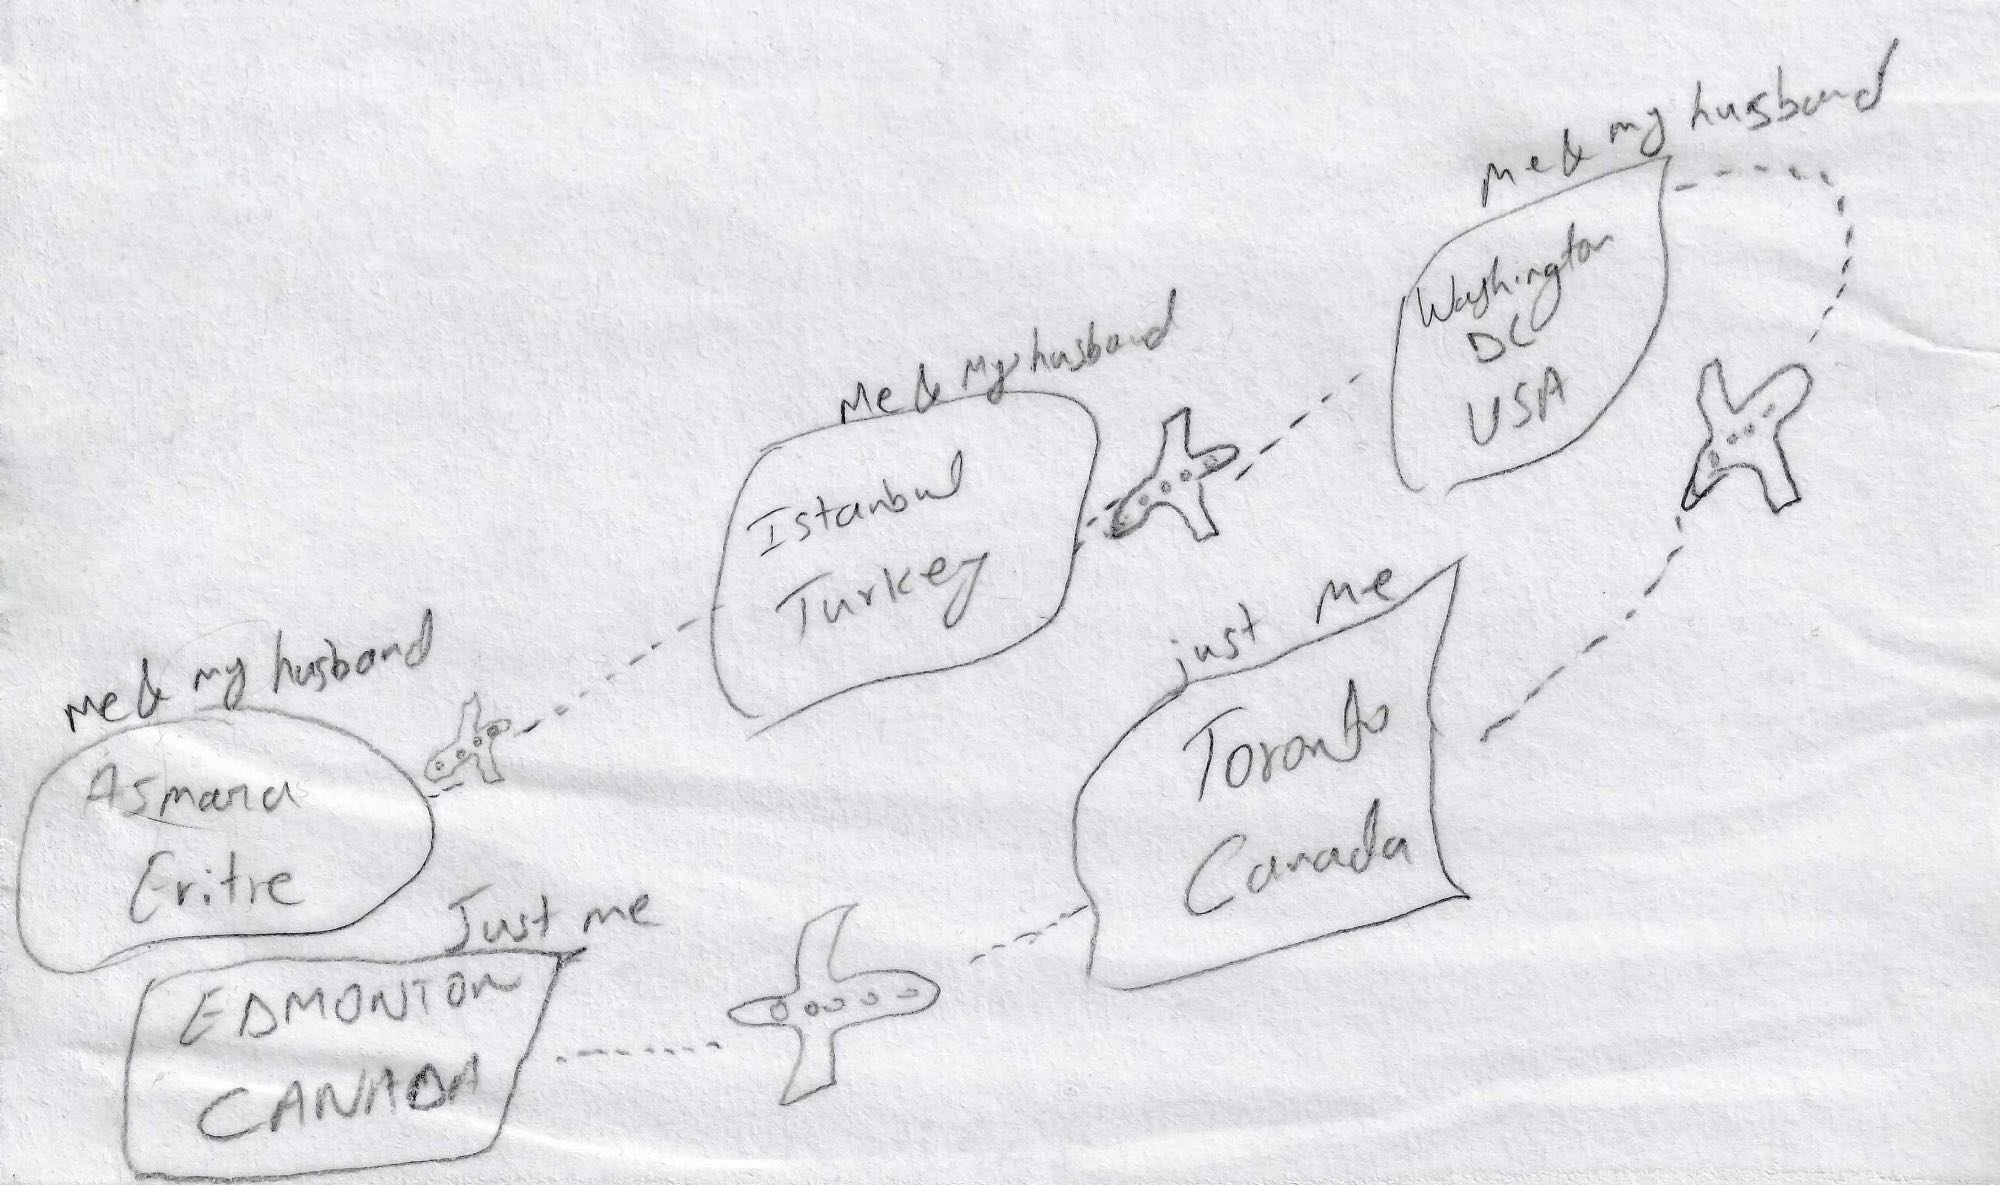 me & my husband
Asmara
Eritre
Me & my husband
Istanbul
Turkey
me & my husband
Washington
DC
USA
just me
Toronto
Canada
Just me
EDMONTON
CANADA